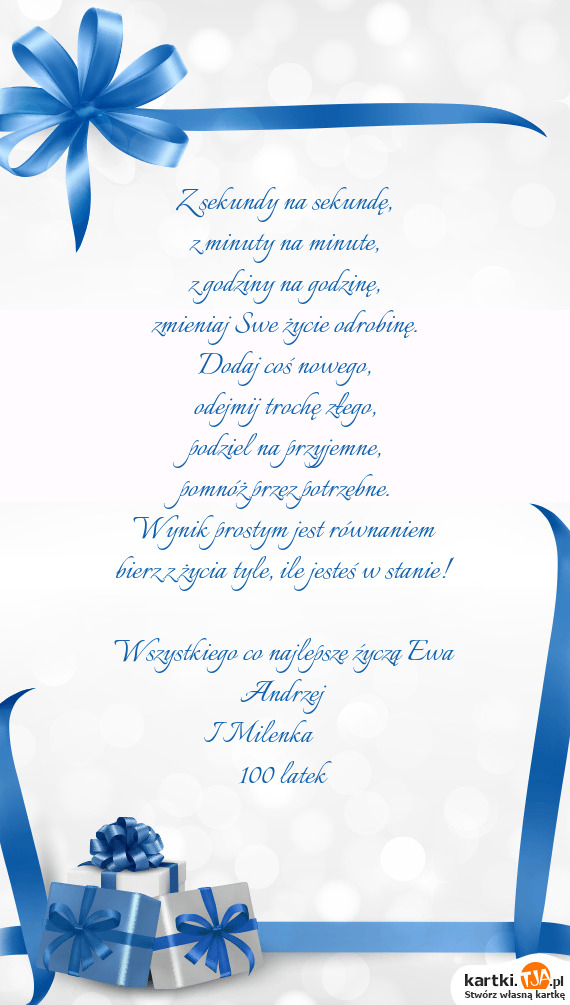 Z sekundy na sekundę,
z minuty na minute,
z godziny na godzinę,
zmieniaj Swe życie odrobinę.
Dodaj coś nowego,
odejmij trochę złego,
podziel na przyjemne,
pomnóż przez potrzebne.
Wynik prostym jest równaniem
bierz z życia tyle, ile jesteś w stanie!
Wszystkiego co najlepsze źyczą Ewa
Andrzej
I Milenka
100 latek
kartki.TJA.pl
Stwórz własną kartkę